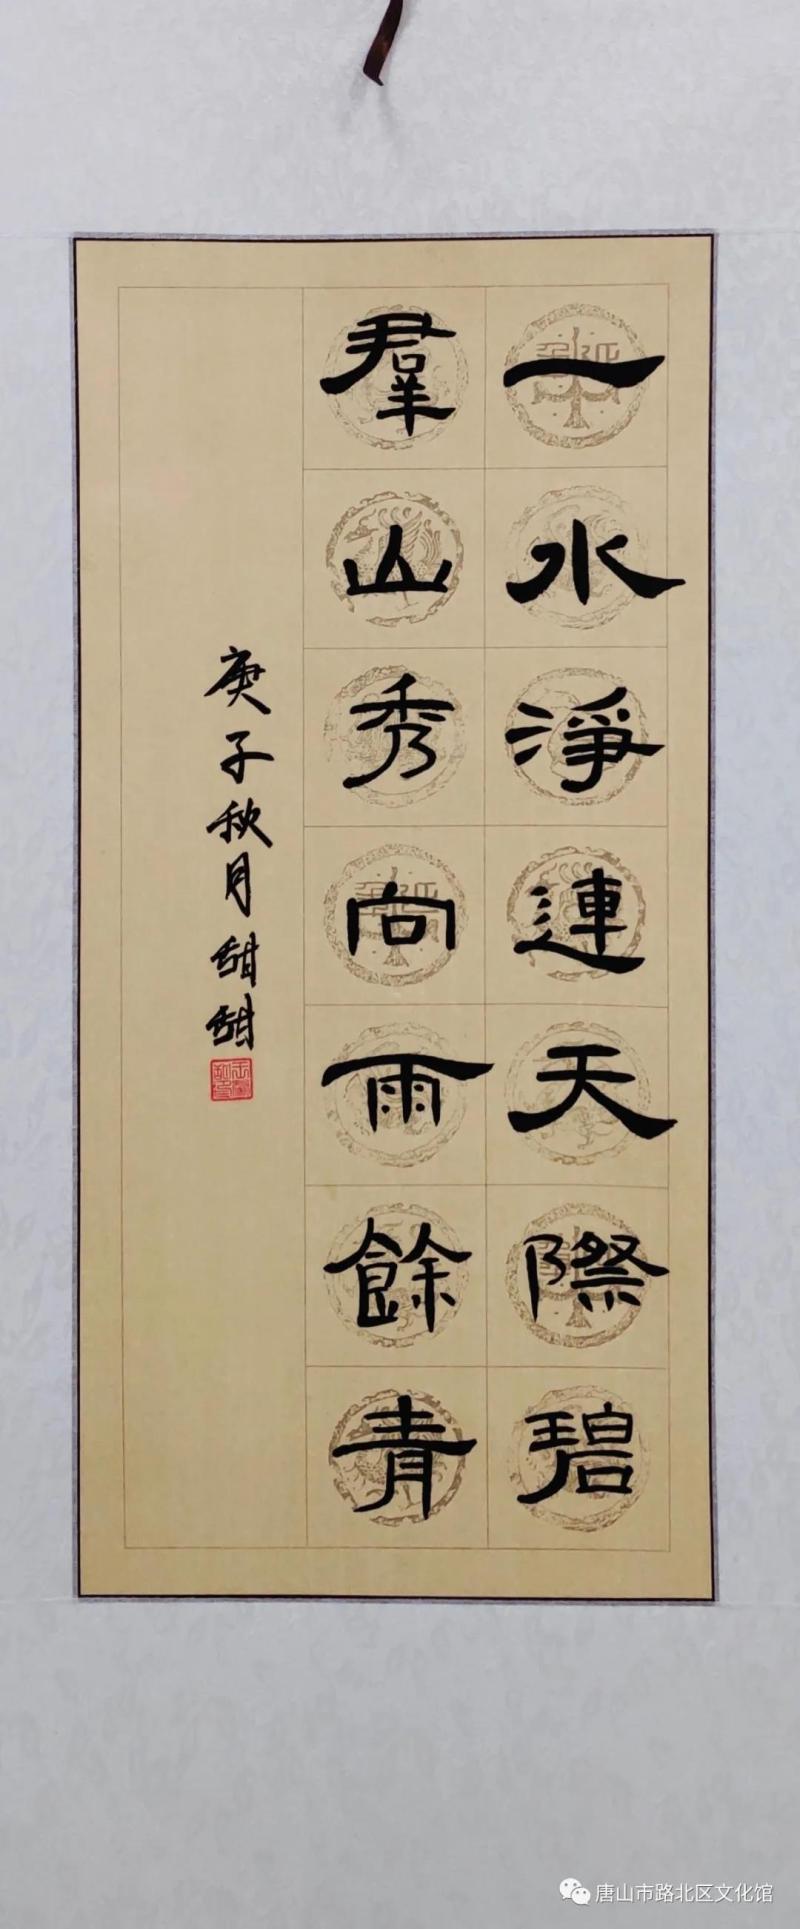 一水淨連天際碧
羣山秀向雨餘青
庚子秋月甜甜
唐山市路北区文化馆